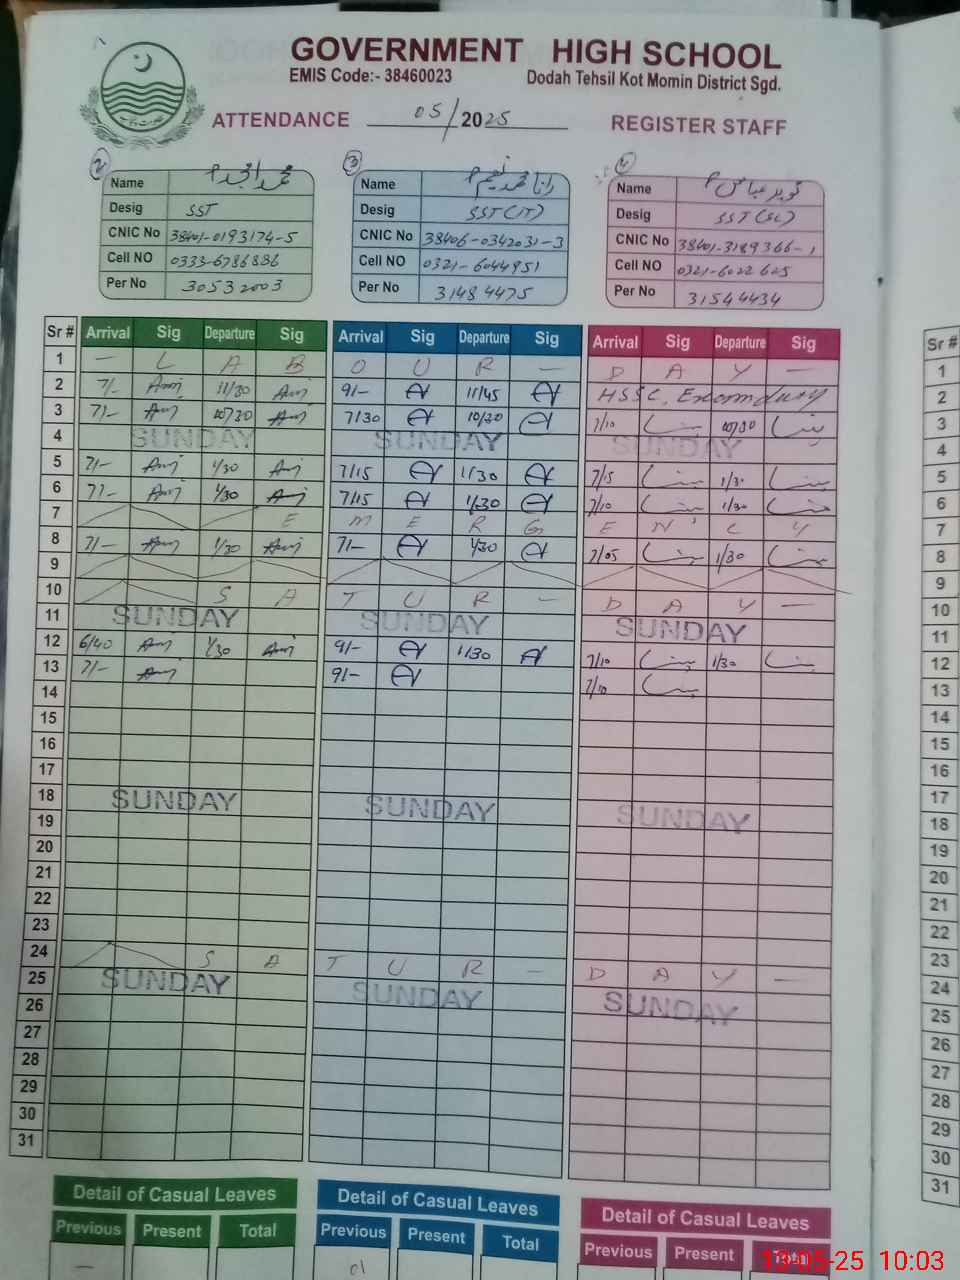 GOVERNMENT HIGH SCHOOL
EMIS Code:- 38460023 Dodah Tehsil Kot Momin District Sgd.
ATTENDANCE 05/2025 REGISTER STAFF
2 3 4
Name محمد امجد Name رانا محمد نعیم Name تنویر عباس
Desig SST Desig SST (IT) Desig SST (SC)
CNIC No 38401-0193174-5 CNIC No 38406-0342031-3 CNIC No 38401-3189366-1
Cell NO 0333-6786886 Cell NO 0321-6044951 Cell NO 0321-6022625
Per No 30532003 Per No 31484475 Per No 31544434
Sr # Arrival Sig Departure Sig Arrival Sig Departure Sig Arrival Sig Departure Sig Sr #
1 — L A B O U R — D A Y — 1
2 7/- 11/30 9/- 11/45 HSSC, Exam duty 2
3 7/- 10/30 7/30 10/30 7/10 10/30 3
4 SUNDAY SUNDAY SUNDAY 4
5 7/- 1/30 7/15 1/30 7/15 1/30 5
6 7/- 1/30 7/15 1/30 7/10 1/30 6
7 E M E R G E N C Y 7
8 7/- 1/30 7/- 1/30 7/05 1/30 8
9 9
10 S A T U R — D A Y — 10
11 SUNDAY SUNDAY SUNDAY 11
12 6/40 1/30 9/- 1/30 7/10 1/30 12
13 7/- 9/- 7/10 13
14 14
15 15
16 16
17 17
18 SUNDAY SUNDAY SUNDAY 18
19 19
20 20
21 21
22 22
23 23
24 S A T U R — D A Y — 24
25 SUNDAY SUNDAY SUNDAY 25
26 26
27 27
28 28
29 29
30 30
31 31
Detail of Casual Leaves Detail of Casual Leaves Detail of Casual Leaves
Previous Present Total Previous Present Total Previous Present Total
— 01
13-05-25 10:03